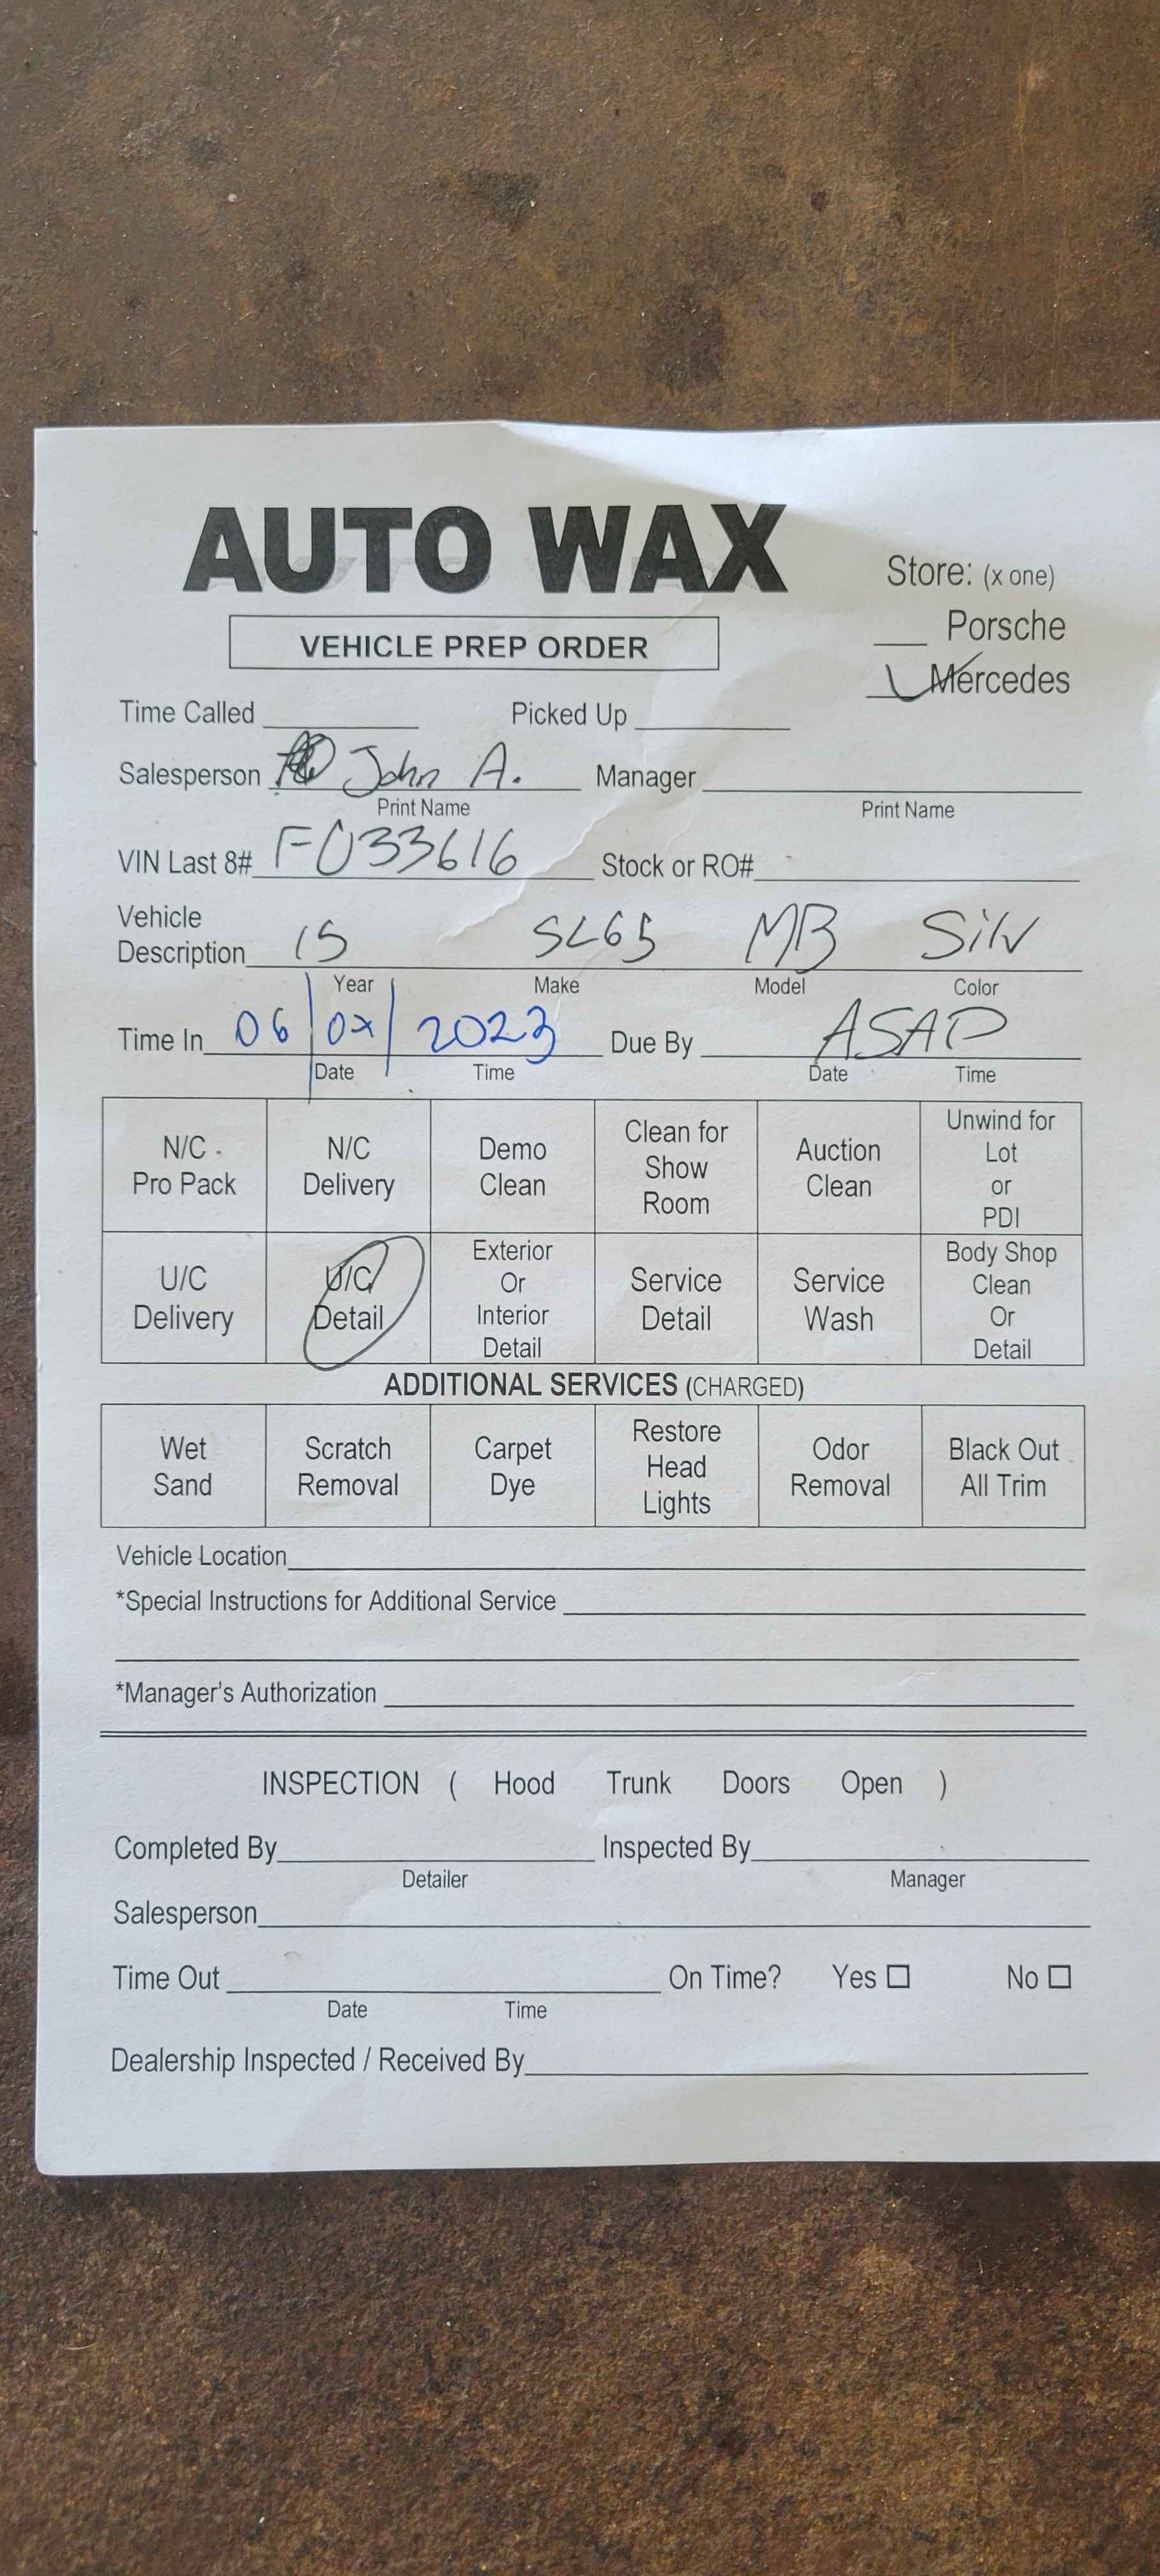 AUTO WAX
Store: (x one)
VEHICLE PREP ORDER
___ Porsche
Mercedes
Time Called ___ Picked Up ___
Salesperson John A. Manager ___
Print Name Print Name
VIN Last 8# F033616 Stock or RO# ___
Vehicle
Description 15 SL65 MB Silv
Year Make Model Color
Time In 06 2023 Due By ASAP
Date Time Date Time
N/C Pro Pack
N/C Delivery
Demo Clean
Clean for Show Room
Auction Clean
Unwind for Lot or PDI
U/C Delivery
U/C Detail
Exterior Or Interior Detail
Service Detail
Service Wash
Body Shop Clean Or Detail
ADDITIONAL SERVICES (CHARGED)
Wet Sand
Scratch Removal
Carpet Dye
Restore Head Lights
Odor Removal
Black Out All Trim
Vehicle Location
*Special Instructions for Additional Service
*Manager's Authorization
INSPECTION ( Hood Trunk Doors Open )
Completed By ___ Inspected By ___
Detailer Manager
Salesperson
Time Out ___ On Time? Yes ☐ No ☐
Date Time
Dealership Inspected / Received By